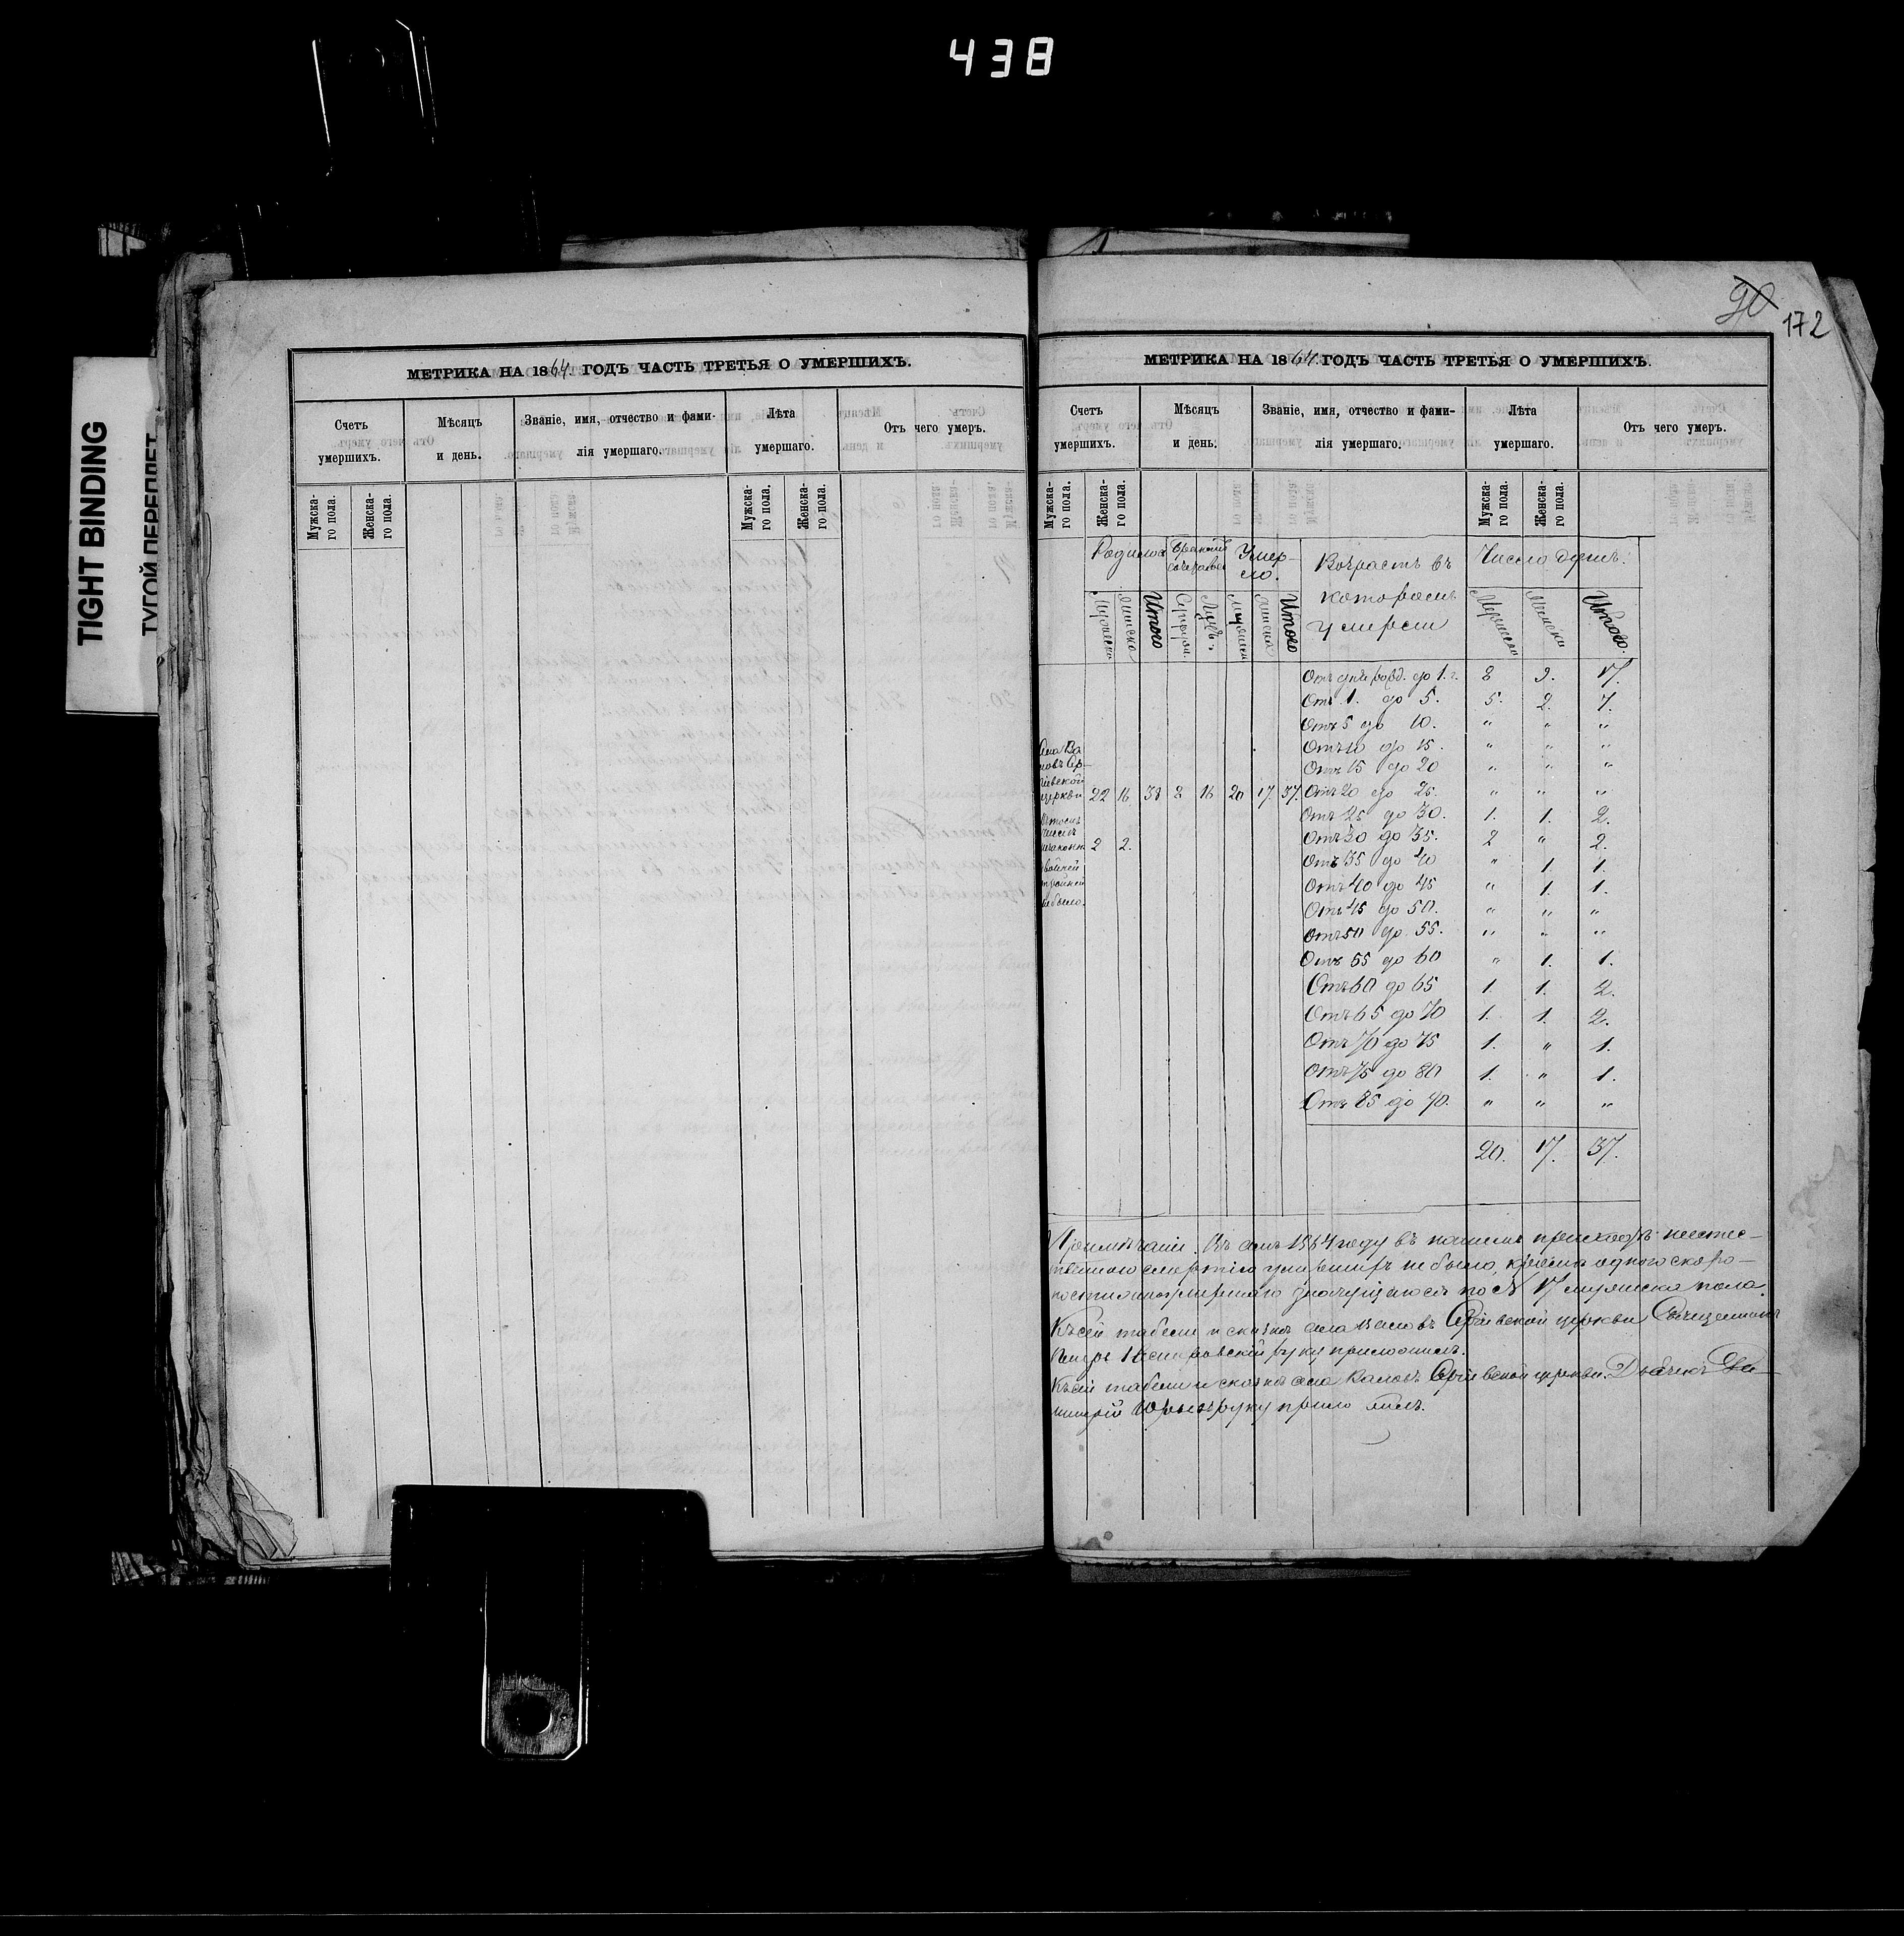 438
TIGHT BINDING
ТУГОЙ ПЕРЕПЛЕТ
МЕТРИКА НА 1864. ГОДЪ ЧАСТЬ ТРЕТЬЯ О УМЕРШИХЪ.
Счетъ умершихъ. Мѣсяцъ и день. Званіе, имя, отчество и фами-
лія умершаго. Лѣта умершаго. Отъ чего умеръ.
Мужска-
го пола. Женска-
го пола. Мужска-
го пола. Женска-
го пола.
90
172
МЕТРИКА НА 1864. ГОДЪ ЧАСТЬ ТРЕТЬЯ О УМЕРШИХЪ.
Счетъ умершихъ. Мѣсяцъ и день. Званіе, имя, отчество и фами-
лія умершаго. Лѣта умершаго. Отъ чего умеръ.
Мужска-
го пола. Женска-
го пола. Мужска-
го пола. Женска-
го пола.
Родилось Умер-
ло. Возрастъ въ
которомъ
умерли Число душъ.
Итого Итого Итого.
церкви 22 16 38 8 16 20 17. 37.
2 2.
не было.
Отъ дня рожд. до 1. г. 8 9. 17.
Отъ 1. до 5. 5. 2. 7.
Отъ 5 до 10. " " "
Отъ 10 до 15. " " "
Отъ 15 до 20 " " "
Отъ 20 до 25. " " "
Отъ 25 до 30. 1. 1. 2.
Отъ 30 до 35. 2 " 2.
Отъ 35 до 40 " 1. 1.
Отъ 40 до 45 " 1. 1.
Отъ 45 до 50. " " "
Отъ 50 до 55. " " "
Отъ 55 до 60 " 1. 1.
Отъ 60 до 65 1. 1. 2.
Отъ 65 до 70 1. 1. 2.
Отъ 70 до 75 1. " 1.
Отъ 75 до 80 1. " 1.
Отъ 85 до 90. " " "
20. 17. 37.
1864 году въ нашемъ приходѣ неестес-
твенною смертію умершихъ не было, кромѣ одного скоро-
постижно умершаго значущагося по № 17 мужска пола.
Къ сей табели и сказкѣ села церкви Священникъ
руку приложилъ.
Къ сей табели и сказкѣ села церкви Дьячекъ Ди-
митрій руку приложилъ.